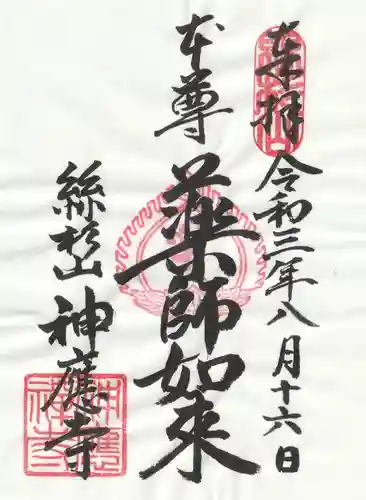 奉拝
令和三年八月十六日
本尊
薬師如来
絲杉山
神應寺